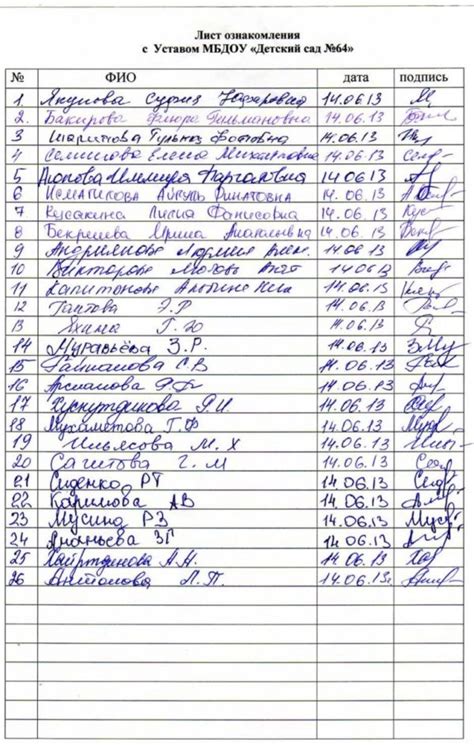 Лист ознакомления
с Уставом МБДОУ «Детский сад №64»
№ ФИО дата подпись
1 Якупова 14.06.13
2. Бакирова Флюра 14.06.13
3 Шарипова Гульназ 14.06.13
4 Семенова Елена Михайловна 14.06.13
5 14.06.13
6 Исмагилова Айгуль Ринатовна 14.06.13
7 Кусакина Лилия Фанисовна 14.06.13 Кус
8 Бекрешева Ирина Анатольевна 14.06.13
9 Андриянова Людмила 14.06.13
10 Викторова Любовь 14.06.13
11 Капитонова Альбина 14.06.13
12 Таптова Э.Р 14.06.13
13 Яхина Г. Ю 14.06.13
14 Муравьёва З.Р. 14.06.13 ЗМу
15 Гайнанова С В 14.06.13
16 Арсланова Э.Ф 14.06.13
17 Хуснутдинова Р.И. 14.06.13
18 Мухаметова Г.Ф 14.06.13
19 Ильясова М. Х 14.06.13
20 Сагитова Г. М 14.06.13
21 Сиденко РТ 14.06.13
22 Каримова АВ 14.06.13
23 Мусина РЗ 14.06.13
24 Ананьева ЗГ 14.06.13
25 Хайртдинова А.Н. 14.06.13
26 Антонова Л.П. 14.06.13